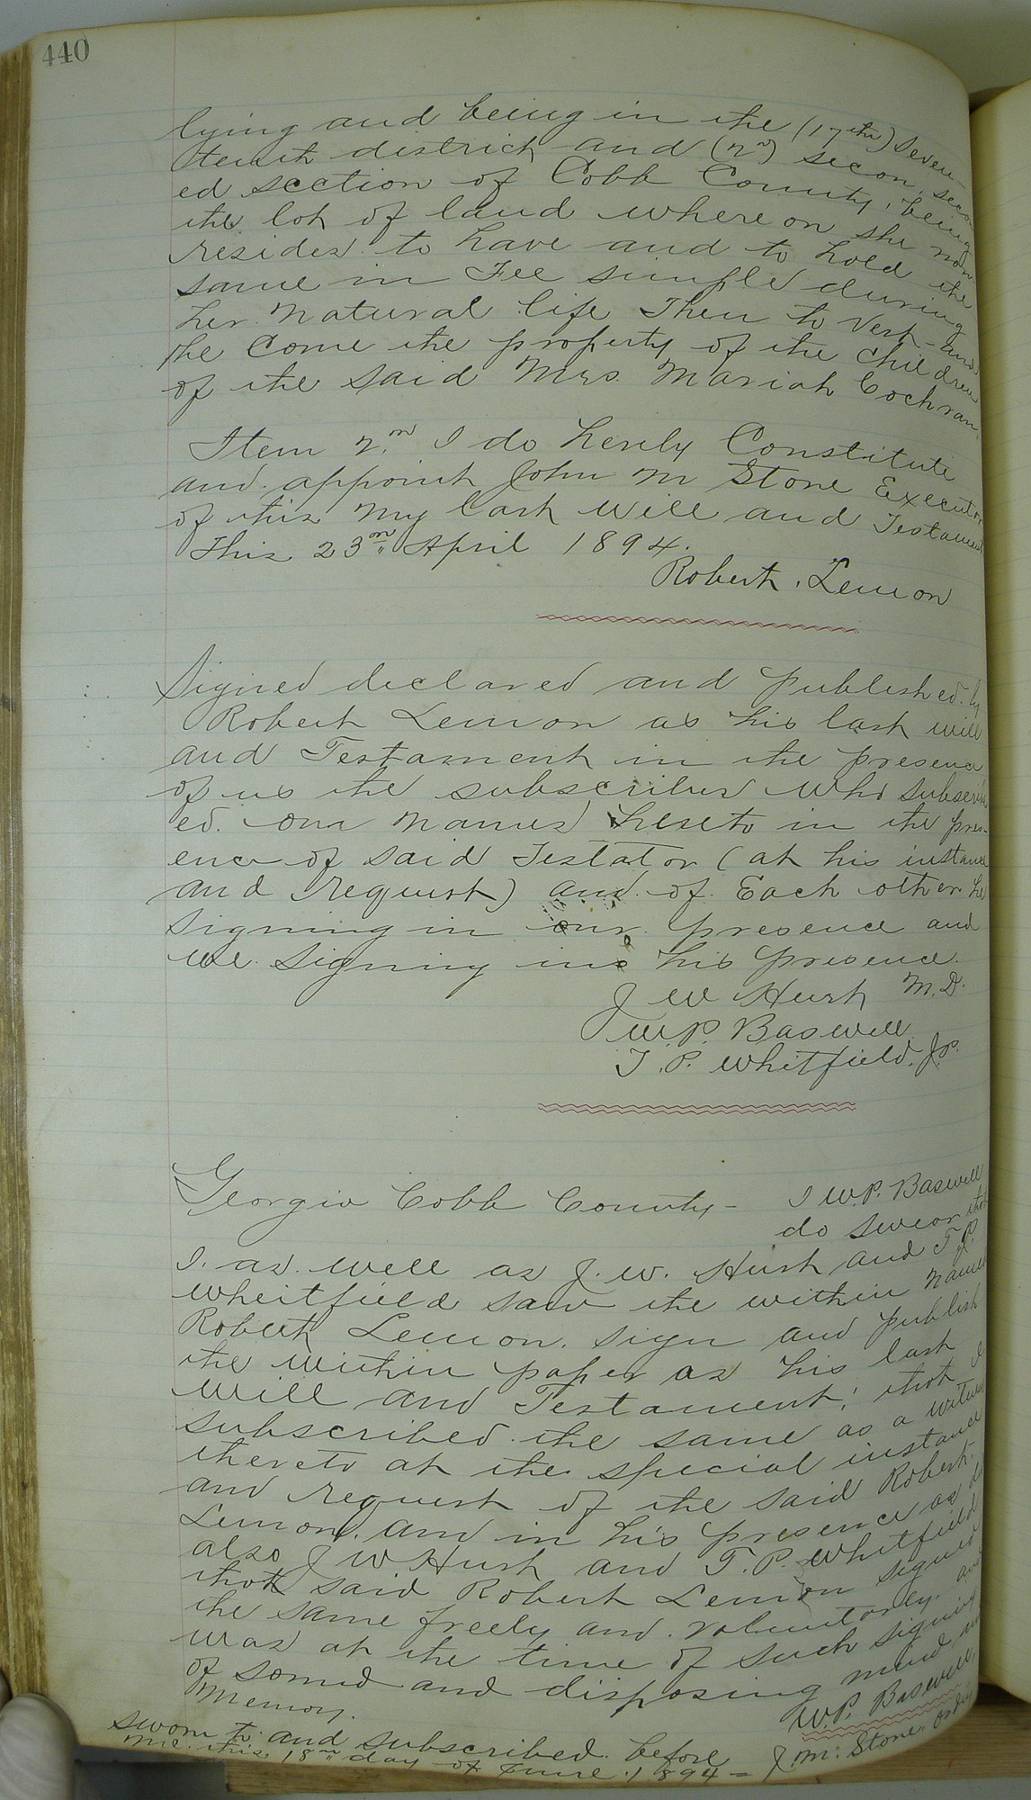 440
lying and being in the (17th) Seven-
teenth district and (2n) secon, secon
ed section of Cobb County, being
the lot of land where on she now
resides to have and to hold the
same in Fee simple during
her Natural life Then to Vest and
be Come the property of the Children
of the Said Mrs. Mariah Cochran.
Item 2n. I do herely Constitute
and appoint John M Stone Executor
of this my last will and Testament
This 23n April 1894.
Robert Lemon
Signed declared and published by
Robert Lemon as his last will
and Testament in the presence
of us the subscriber who subscrib
ed our names hereto in the pres-
ence of said Testator (at his instance
and request) and of Each other he
signing in our presence and
we signing in his presence
J W Hush M.D.
W.P. Baswell
T.P. Whitfield J.P.
Georgia Cobb County - I W.P. Baswell
do swear that
I as well as J. W. Hush and T.P.
Whitfield saw the within named
Robert Lemon sign and publish
the within paper as his last
will and Testament; that I
subscribed the same as a witness
thereto at the special instance
and request of the said Robert
Lemon, and in his presence as did
also J W Hush and T.P. Whitfield
that said Robert Lemon signed
the same freely and voluntarey and
was at the time of such signing
of sound and disposing mind and
Memory.
W.P. Baswell
Sworn to and subscribed before
me this 18n day of June 1894 - J. M. Stone Ordy